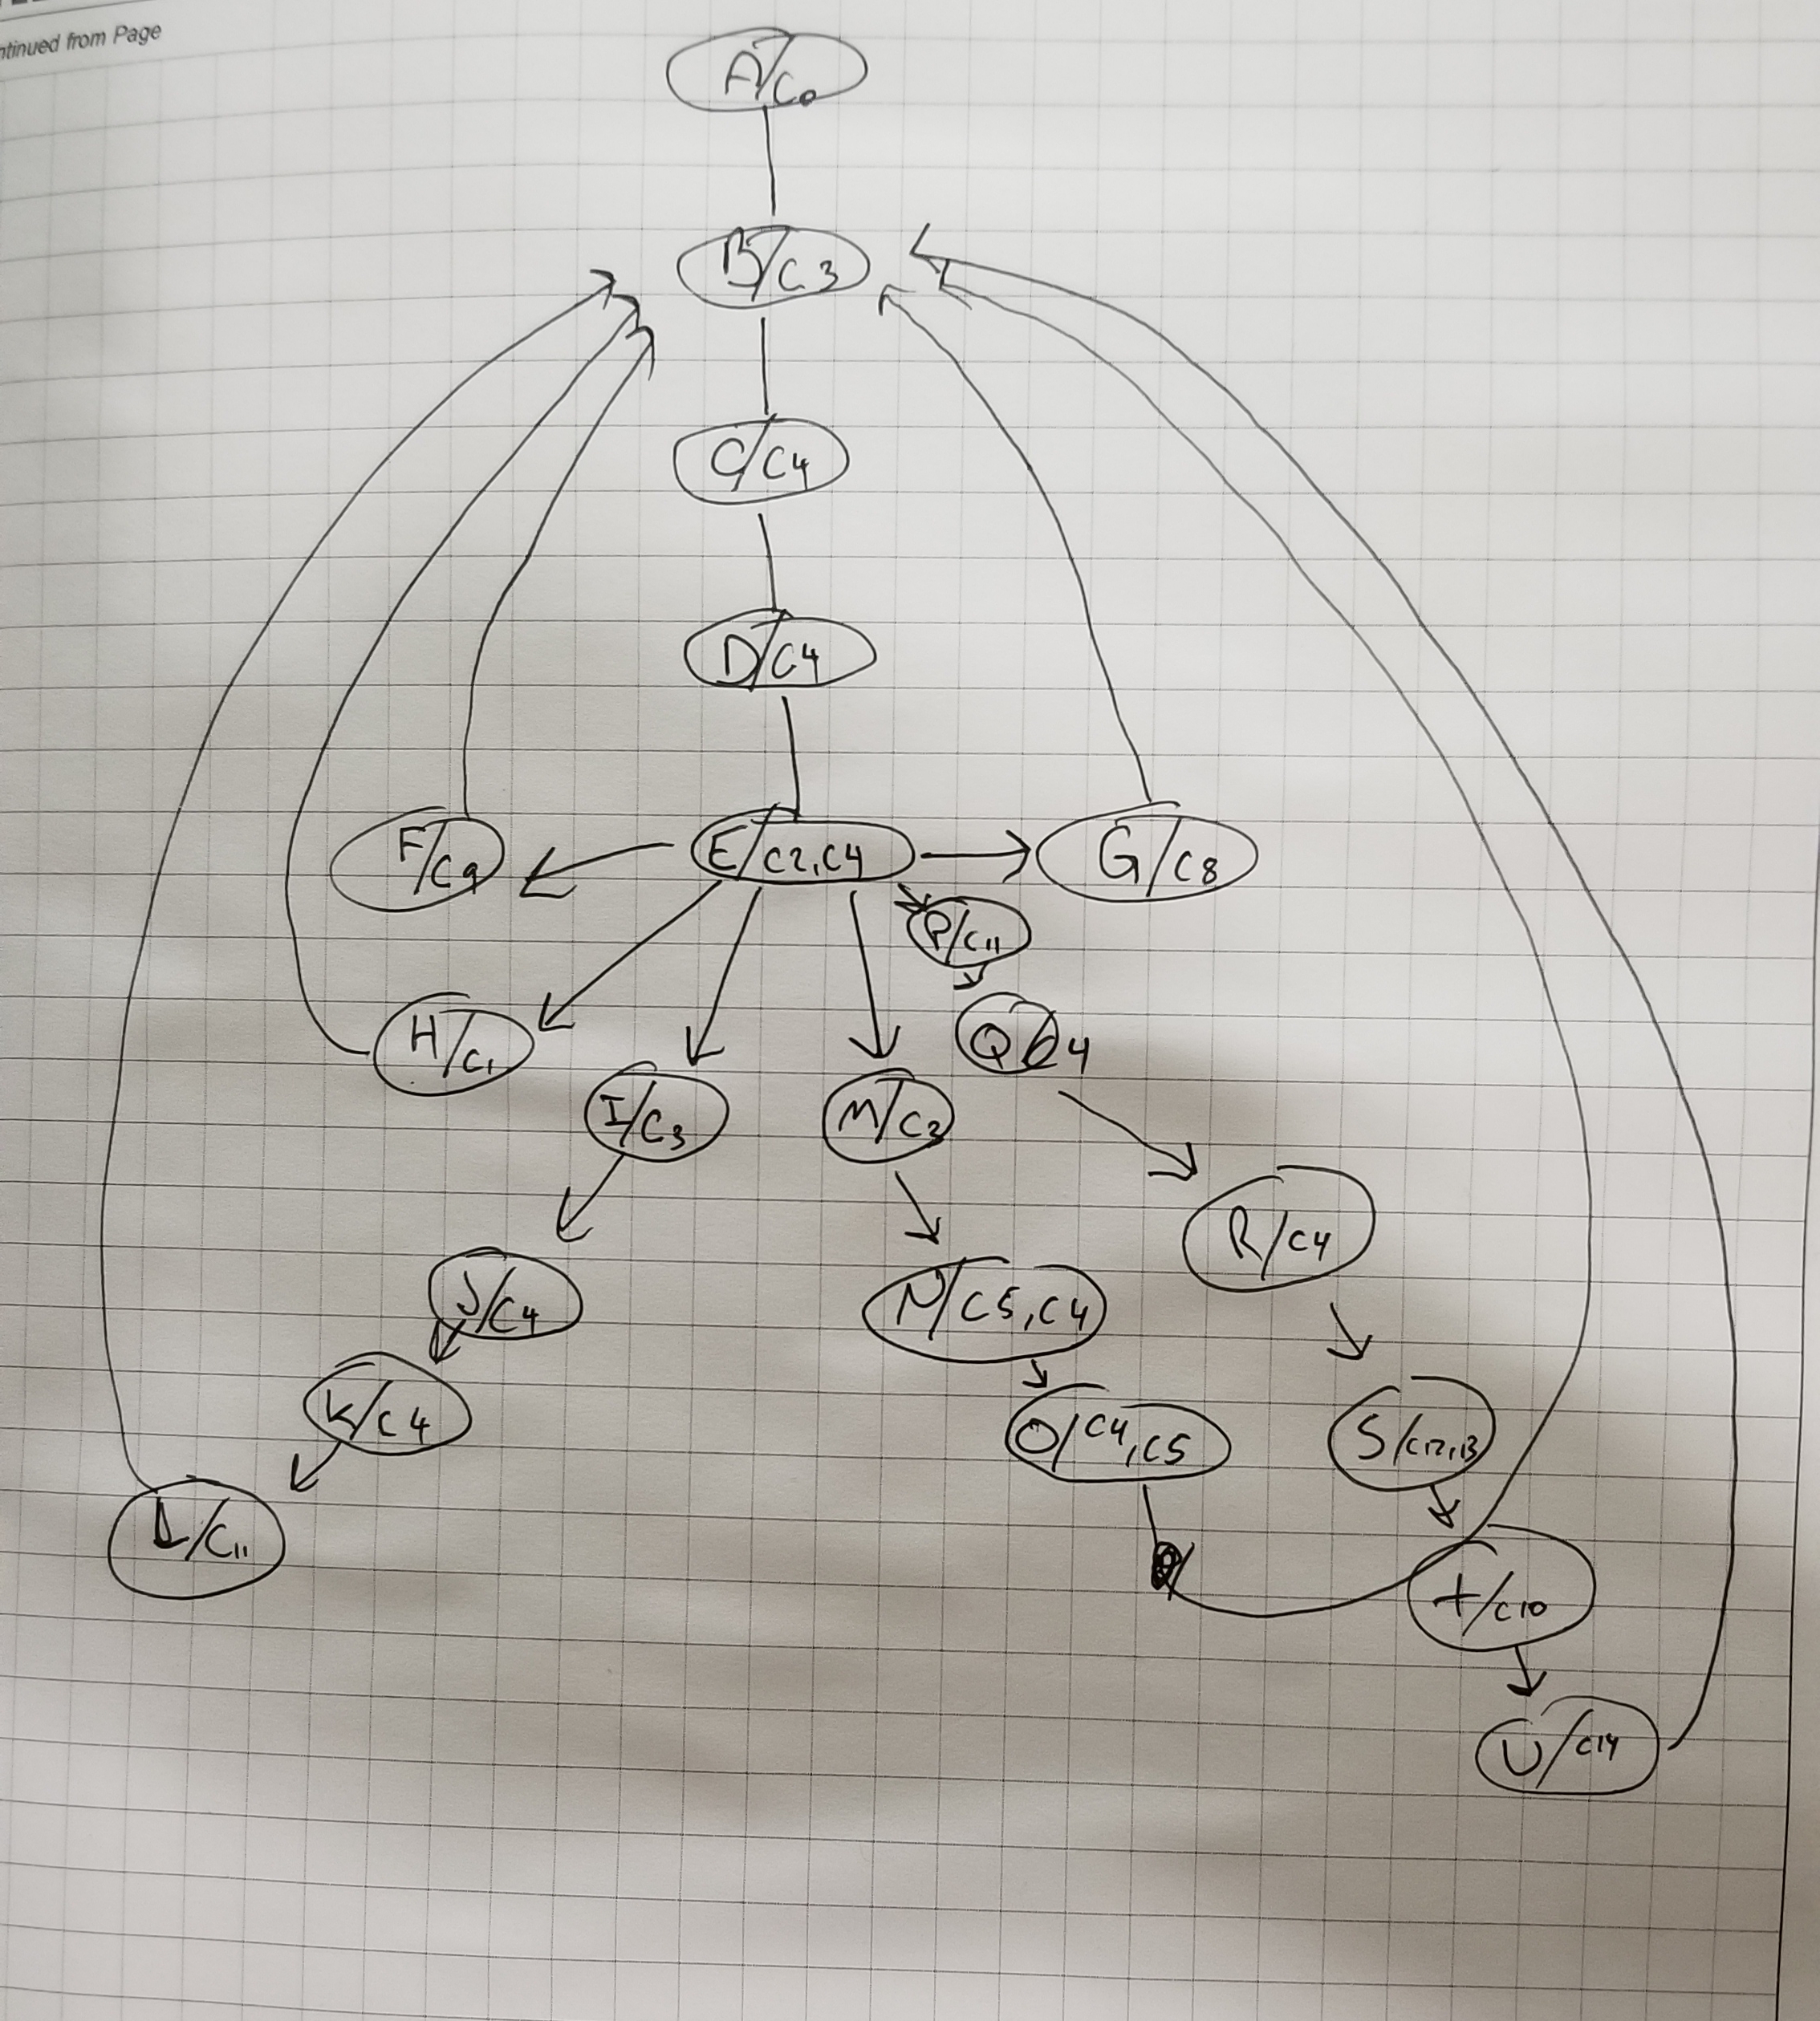 ntinued from Page
A/C0
B/C3
C/C4
D/C4
F/C9
E/C2,C4
G/C8
P/C11
H/C1
Q/C4
I/C3
M/C3
R/C4
J/C4
N/C5,C4
K/C4
O/C4,C5
S/C12,13
L/C11
T/C10
U/C14